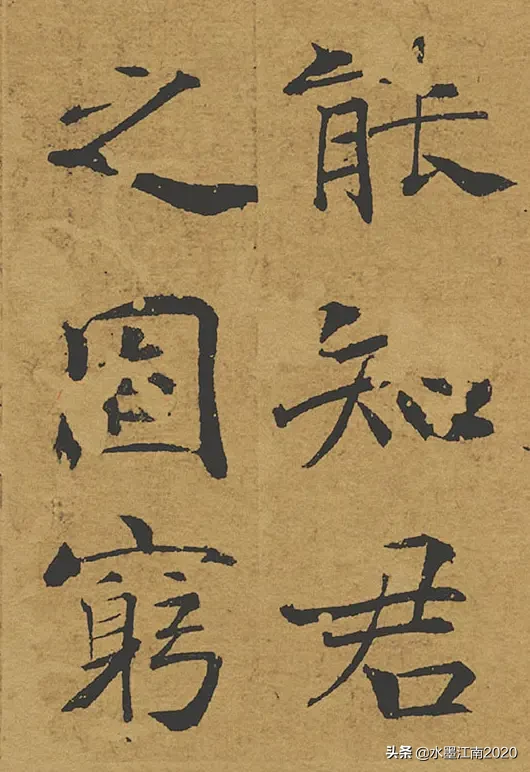 能知君
之固窮
头条 @水墨江南2020